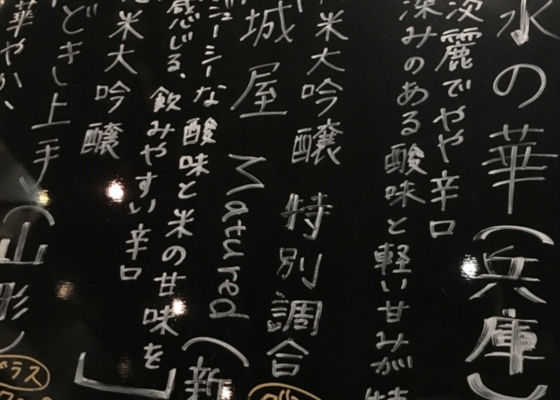 水の華(兵庫)
淡麗でやや辛口
深みのある酸味と軽い甘みが特
米大吟醸 特別調合
城屋 Matured (新
ジューシーな酸味と米の甘味を
感じる、飲みやすい辛口
米大吟醸
どきし上手(山形)
華やか、
グラス